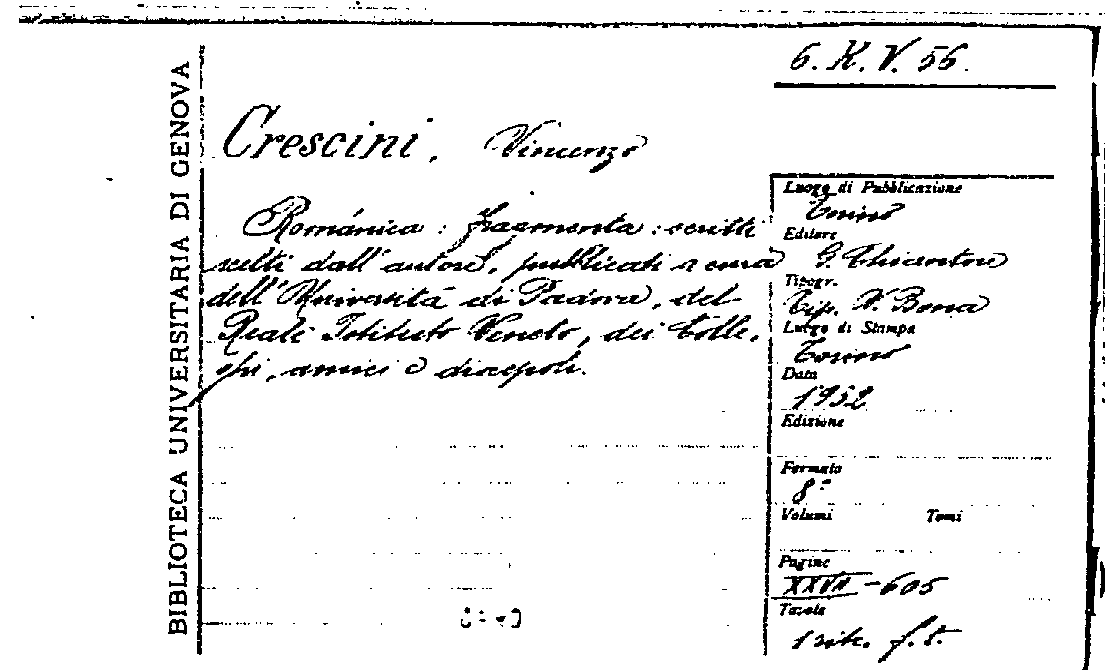 6. K. V. 56.
BIBLIOTECA UNIVERSITARIA DI GENOVA
Crescini, Vincenzo
Románica : fragmenta : scritti
scelti dall'autore, pubblicati a cura
dell'Università di Padova, del
Reale Istituto Veneto, dei Colle,
ghi, amici e discepoli.
Luogo di Pubblicazione
Torino
Editore
G. Chiantore
Tipogr.
Tip. V. Bona
Luogo di Stampa
Torino
Data
1932
Edizione
Formato
8°
Volumi Tomi
Pagine
XXVII-605
Tavole
1 ritr. f. t.